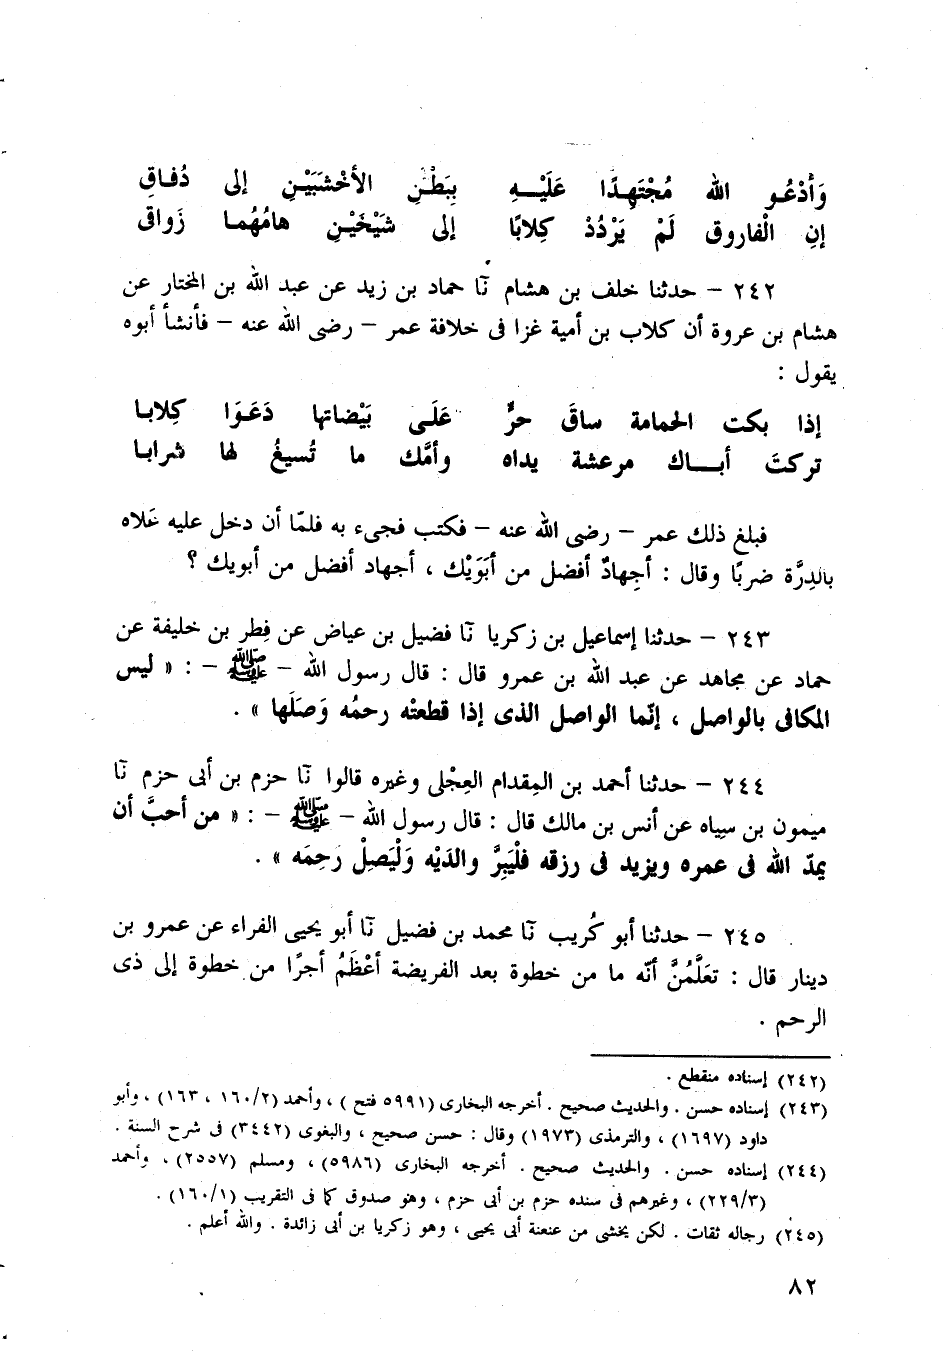 وَأَدْعُـو الله مُجْتَهِدًا عَلَيْـهِ بِبَطْـنِ الأخْشَبَيْـنِ إلى دُفـاقِ
إنِ الْفاروق لَمْ يَرْدُدْ كِلابًا إلى شَيْخَيْنِ هامُهُمـا زَواقى
٢٤٢ – حدثنا خلف بن هشام نَا حماد بن زيد عن عبد الله بن المختار عن
هشام بن عروة أن كلاب بن أمية غزا فى خلافة عمر – رضى الله عنه – فأنشأ أبوه
يقول :
إذا بكت الحمامة ساقَ حرٍّ عَلَـى بَيْضاتها دَعَوَا كِلابـا
تركتَ أبـــاك مرعشة يداه وأمَّك ما تُسيغُ لها شرابـا
فبلغ ذلك عمر – رضى الله عنه – فكتب فجىء به فلمّا أن دخل عليه عَلاه
بالدِرَّة ضربًا وقال : أجِهادٌ أفضل من أبَوَيْك ، أجهاد أفضل من أبويك ؟
٢٤٣ – حدثنا إسماعيل بن زكريا نَا فضيل بن عياض عن فِطر بن خليفة عن
حماد عن مجاهد عن عبد الله بن عمرو قال : قال رسول الله – ﷺ – : « ليس
المكافى بالواصل ، إنّما الواصل الذى إذا قطعتْه رحمُه وَصَلَها » .
٢٤٤ – حدثنا أحمد بن المِقدام العِجْلى وغيره قالوا نَا حزم بن أبى حزم نَا
ميمون بن سِياه عن أنس بن مالك قال : قال رسول الله – ﷺ – : « من أحبَّ أن
يمدّ الله فى عمره ويزيد فى رزقه فلْيَبِرَّ والدَيْه وَلْيَصِلْ رَحِمَه » .
٢٤٥ – حدثنا أبو كُريب نَا محمد بن فضيل نَا أبو يحيى الفراء عن عمرو بن
دينار قال : تعَلَّمُنَّ أنّه ما من خطوة بعد الفريضة أعْظَمُ أجرًا من خطوة إلى ذى
الرحم .
(٢٤٢) إسناده منقطع .
(٢٤٣) إسناده حسن . والحديث صحيح . أخرجه البخارى (٥٩٩١ فتح ) ، وأحمد (١٦٠/٢ ، ١٦٣) ، وأبو
داود (١٦٩٧) ، والترمذى (١٩٧٣) وقال : حسن صحيح ، والبغوى (٣٤٤٢) فى شرح السنة .
(٢٤٤) إسناده حسن . والحديث صحيح . أخرجه البخارى (٥٩٨٦) ، ومسلم (٢٥٥٧) ، وأحمد
(٢٢٩/٣) ، وغيرهم فى سنده حزم بن أبى حزم ، وهو صدوق كما فى التقريب (١٦٠/١) .
(٢٤٥) رجاله ثقات . لكن يخشى من عنعنة أبى يحيى ، وهو زكريا بن أبى زائدة . والله أعلم .
٨٢